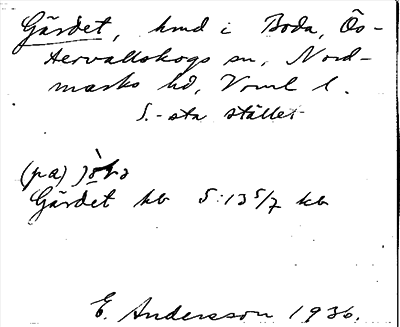 Gärdet, hmd i Boda, Ös-
tervallskogs sn, Nord-
marks hd, Vrml l.
S.-sta stället
(pa)
Gärdet kb 5:13 5/7 kb
E. Andersson 1936.